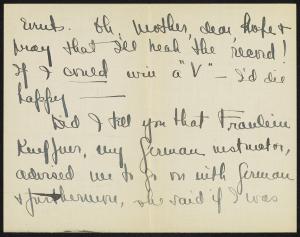 events. Oh, Mother, dear, hope &
pray that I'll reak the record!
If I could win a "V" — I'd die
happy —
Did I tell you that Fraulein
Kueffner, my German instructor,
advised me to go on with German
& furthermore, she said if I was